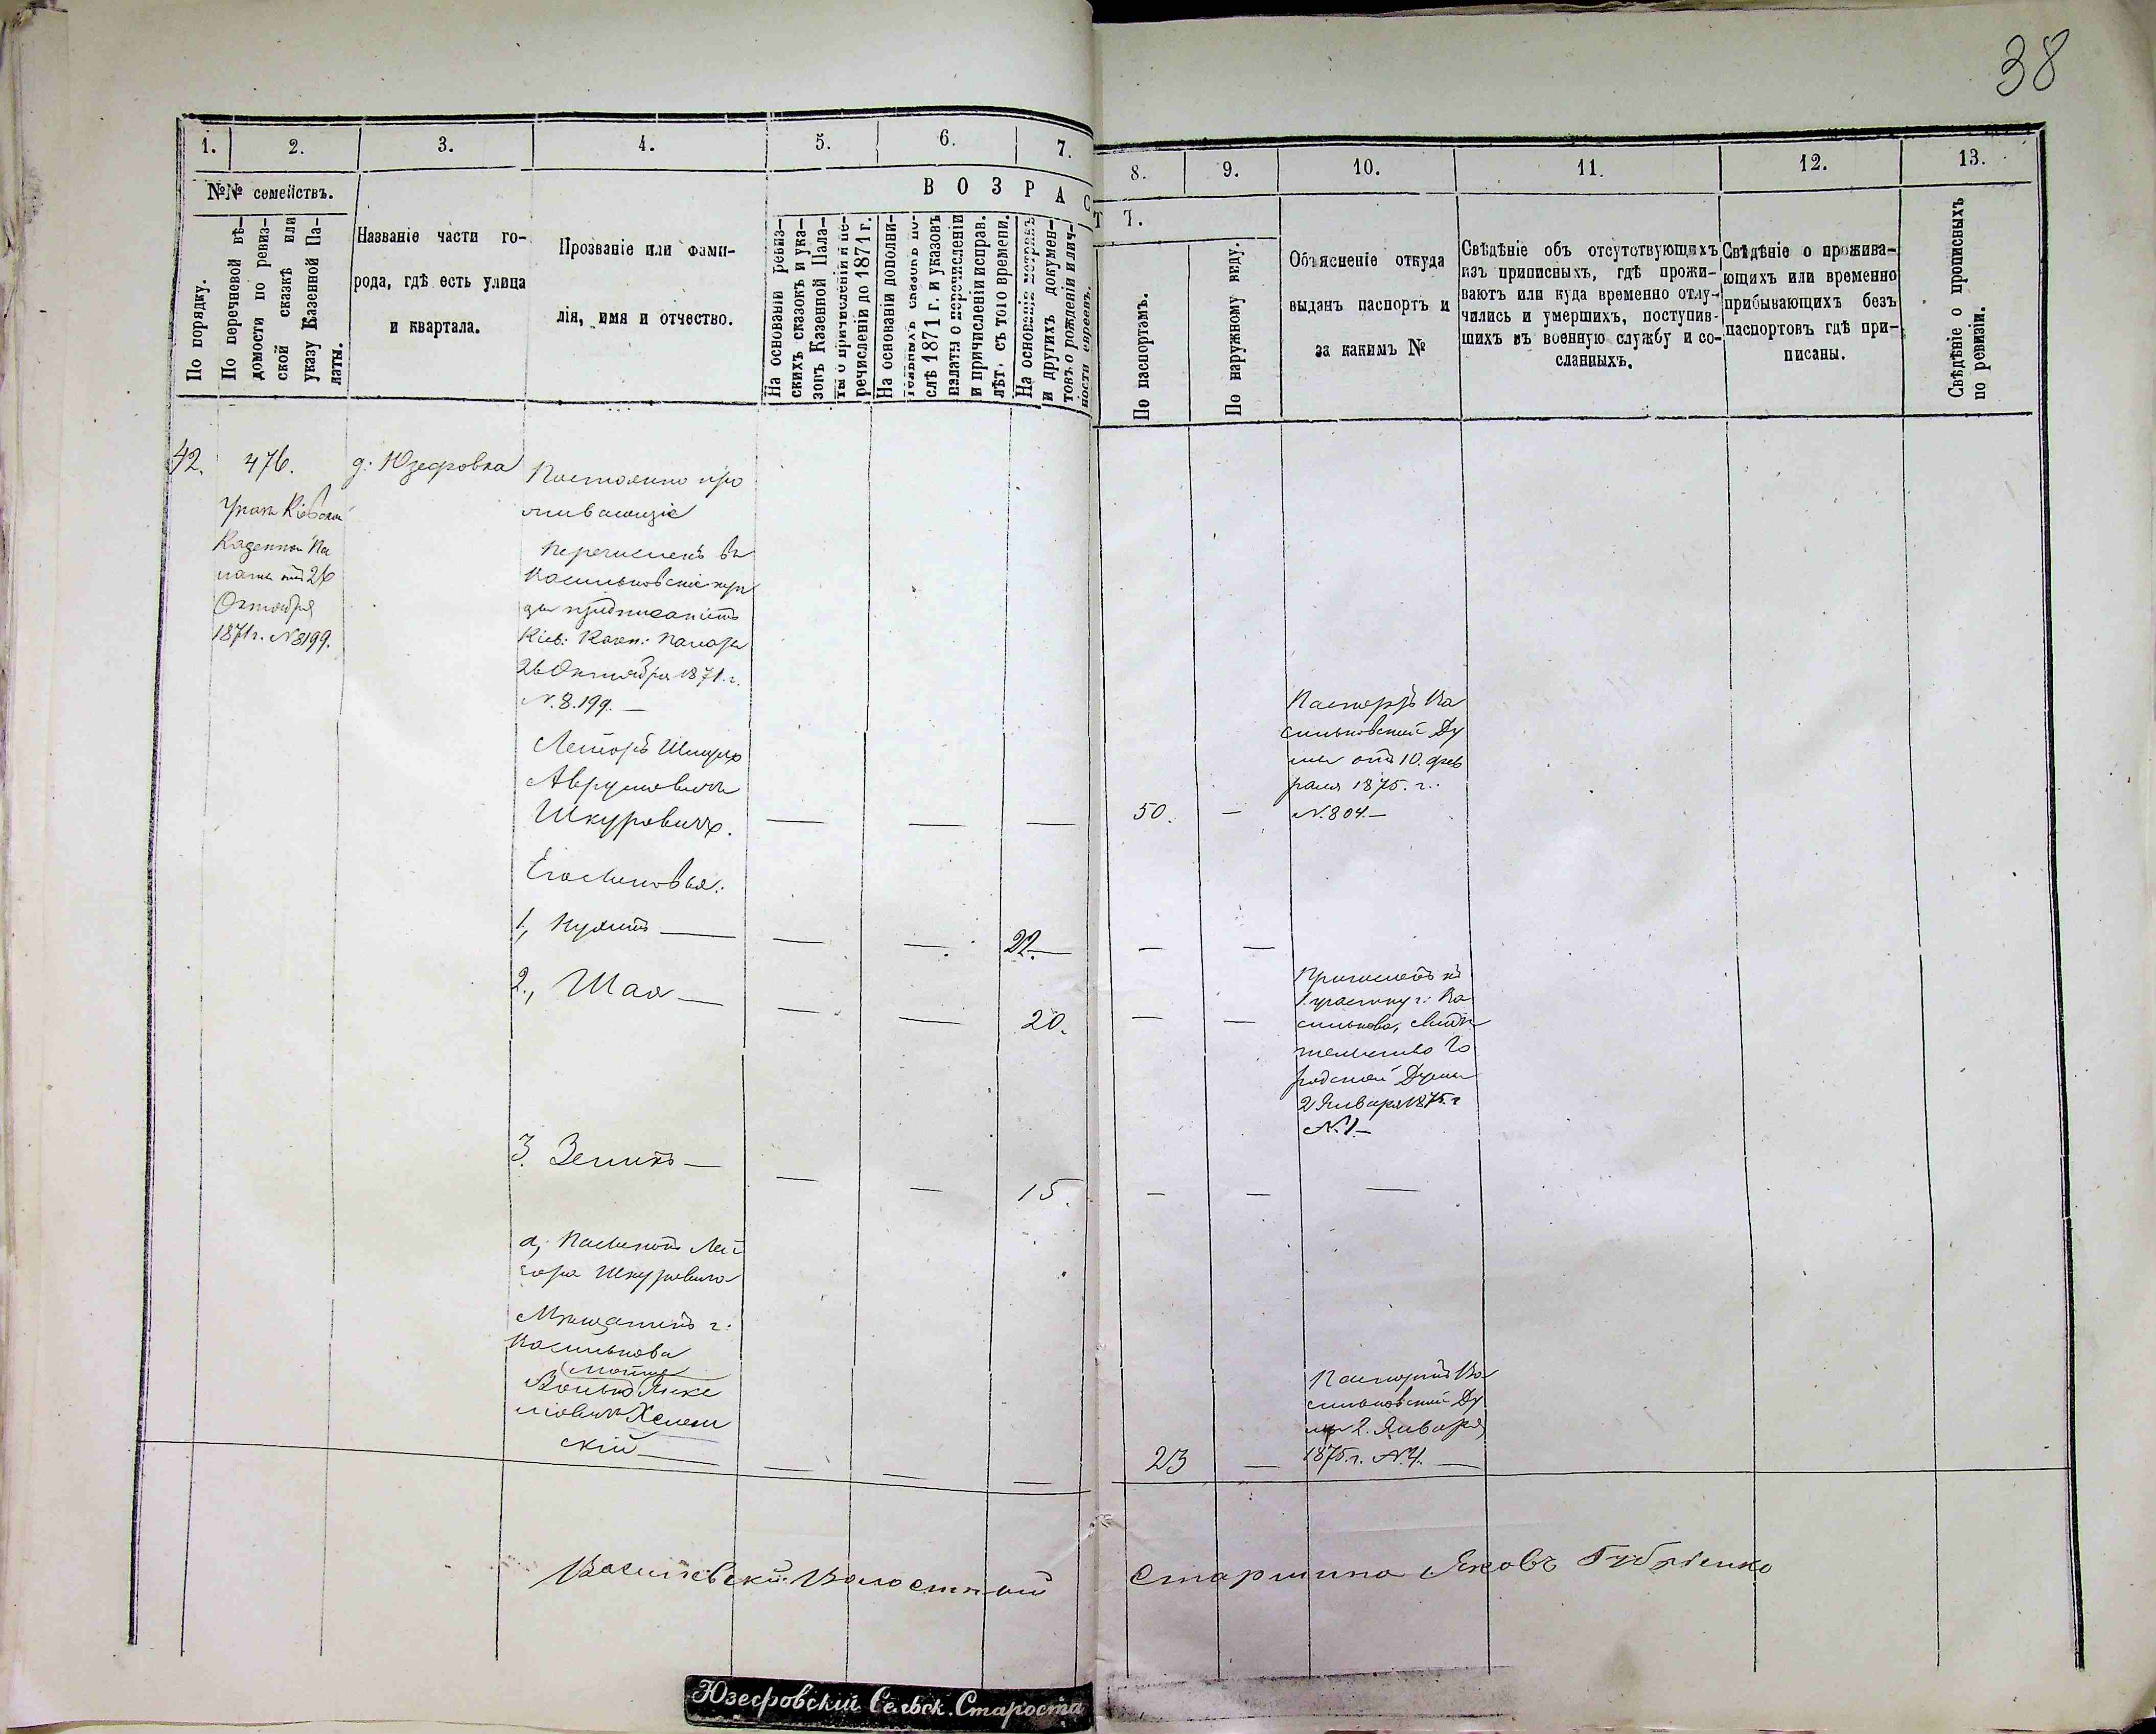 38
1.
2.
3.
4.
5.
6.
7.
8.
9.
10.
11.
12.
13.
№№ семействъ.
По порядку.
По перечневой вѣ-
домости по ревиз-
ской сказкѣ или
указу Казенной Па-
латы.
Названіе части го-
рода, гдѣ есть улица
и квартала.
Прозваніе или фами-
лія, имя и отчество.
ВОЗРАСТ
На основаніи ревиз-
скихъ сказокъ и ука-
зовъ Казенной Пала-
ты о причисленіи и пе-
речисленіи до 1871 г.
На основаніи дополни-
тельныхъ сказокъ по-
слѣ 1871 г. и указовъ
палаты о перечисленіи
и причисленіи исправ.
лѣт. съ того времени.
На основаніи метрикъ
и другихъ докумен-
товъ о рожденіи и лич-
ности евреевъ.
По паспортамъ.
По наружному виду.
Объясненіе откуда
выданъ паспортъ и
за какимъ №
Свѣдѣніе объ отсутствующихъ
изъ приписныхъ, гдѣ прожи-
ваютъ или куда временно отлу-
чились и умершихъ, поступив-
шихъ въ военную службу и со-
сланныхъ.
Свѣдѣніе о прожива-
ющихъ или временно
прибывающихъ безъ
паспортовъ гдѣ при-
писаны.
Свѣдѣніе о прописныхъ
по ревизіи.
42.
476.
Указъ Кіевской
Казенной Па
латы отъ 26
Октября
1871 г. N 8199.
д. Юзефовка
Постоянно про
живающіе
Перечисленъ въ
Васильковскіе куп
цы предписаніемъ
Кіев: Казен: Палаты
26 Октября 1871. г.
N. 8.199. —
Лейзоръ Шмуль
Аврумовичъ
Шкуровичъ.
50. —
Паспортъ Ва
сильковской Ду
мы отъ 10. фев
раля 1875. г.
N. 804. —
Его сыновья:
1, —
22.
2, Шая —
20.
Причисленъ къ
1. участку г: Ва
силькова, свидѣ
тельство Го
родской Думы
2 Января 1875. г
N. 1 —
3. Зеликъ —
15.
а,
Шкуровича
Мѣщанинъ г:
Василькова
Мошко
Волько Янке
левичъ
скій —
23 —
Паспортъ Ва
сильковской Ду
мы 2. Января
1875. г. N. 4. —
Волостной Старшина Яковъ
Юзефовскій Сельск. Староста